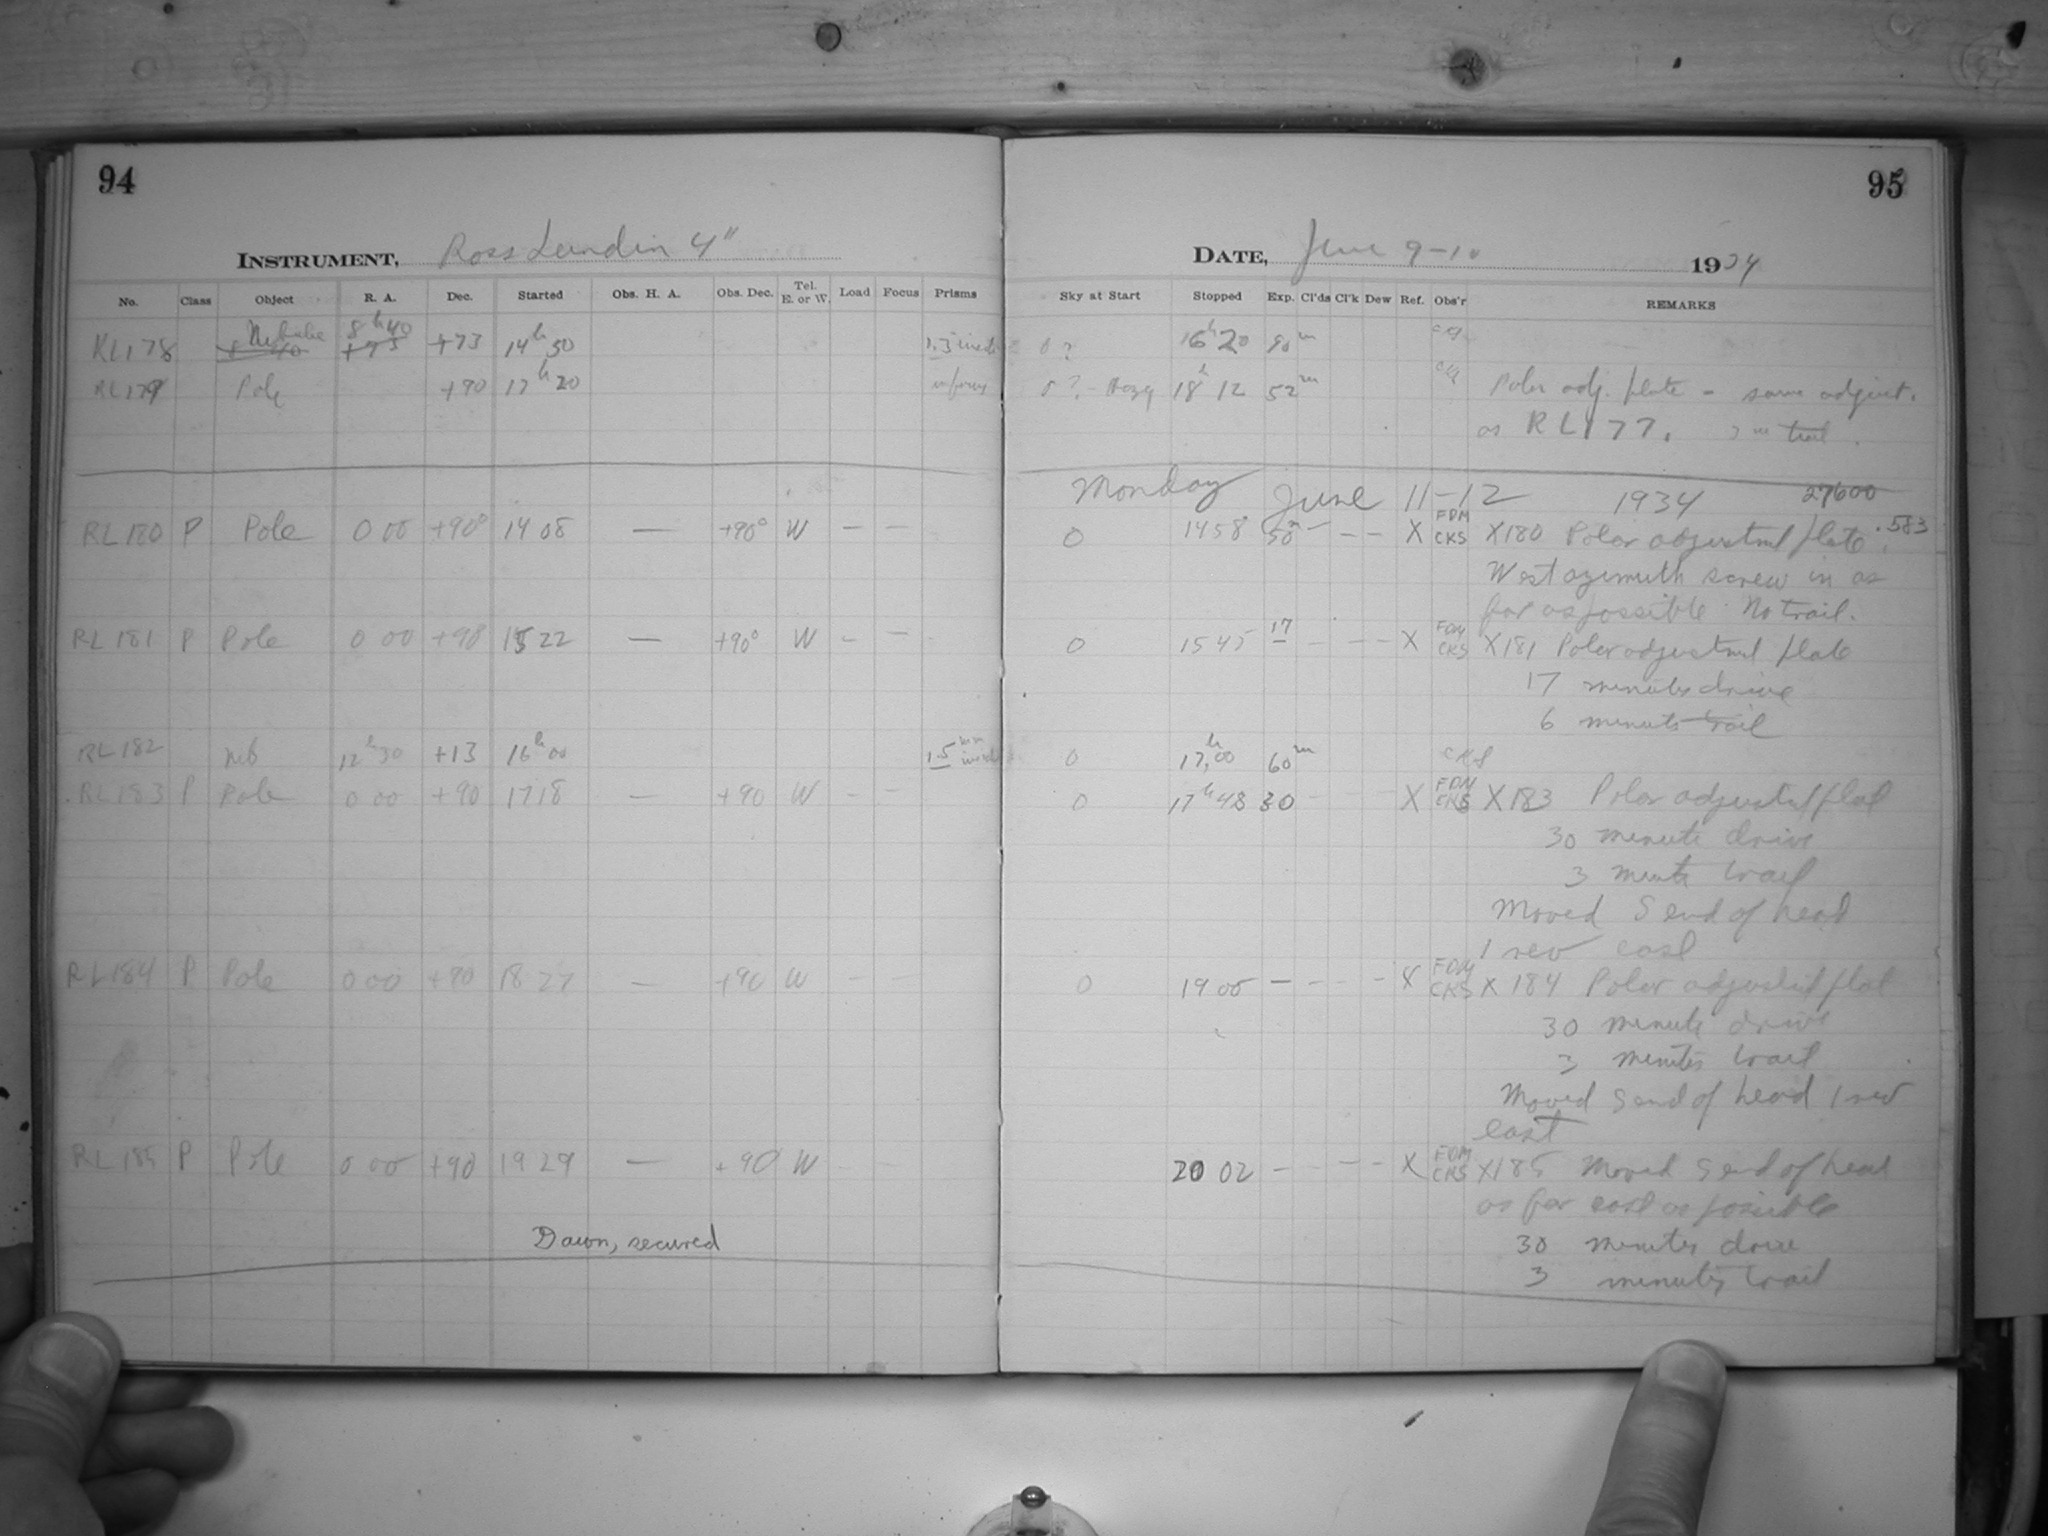 94
95
INSTRUMENT, Ross Lundin 4"
DATE, June 9-10 1934
No. Class Object R. A. Dec. Started Obs. H. A. Obs. Dec. Tel. E. or W. Load Focus Prisms Sky at Start Stopped Exp. Cl'ds Cl'k Dew Ref. Obs'r REMARKS
RL178 Nebulae 8h40 +73 +73 14h50 0? 16h20 90m CKS
RL179 Pole +90 17h20 0? - Hazy 18h12 52m CKS Polar adj. plate - same adjust.
as RL177. 3m trail.
Monday June 11-12 1934 27600
RL180 P Pole 0 00 +90° 14 08 — +90° W — — 0 1458 50m — — — X FDM CKS X180 Polar adjustment plate .583
West azimuth screw in as
far as possible. No trail.
RL181 P Pole 0 00 +90 15 22 — +90° W — — 0 15 45 17 — — — X FDM CKS X181 Polar adjustment plate
17 minutes drive
6 minutes trail
RL182 neb 12h30 +13 16h00 1.5 mm 0 17h00 60m CKS
RL183 P Pole 0 00 +90 1718 — +90 W — — 0 17h48 30 — — — X FDM CKS X183 Polar adjustment plate
30 minute drive
3 minute trail
Moved S end of head
1 rev east
RL184 P Pole 0 00 +90 18 27 — +90 W — — 0 19 00 — — — — X FDM CKS X184 Polar adjustment plate
30 minute drive
3 minutes trail
Moved S end of head 1 rev
east
RL185 P Pole 0 00 +90 19 29 — +90 W — — 20 02 — — — — X FDM CKS X185 Moved S end of head
as far east as possible
30 minutes drive
3 minutes trail
Dawn, secured